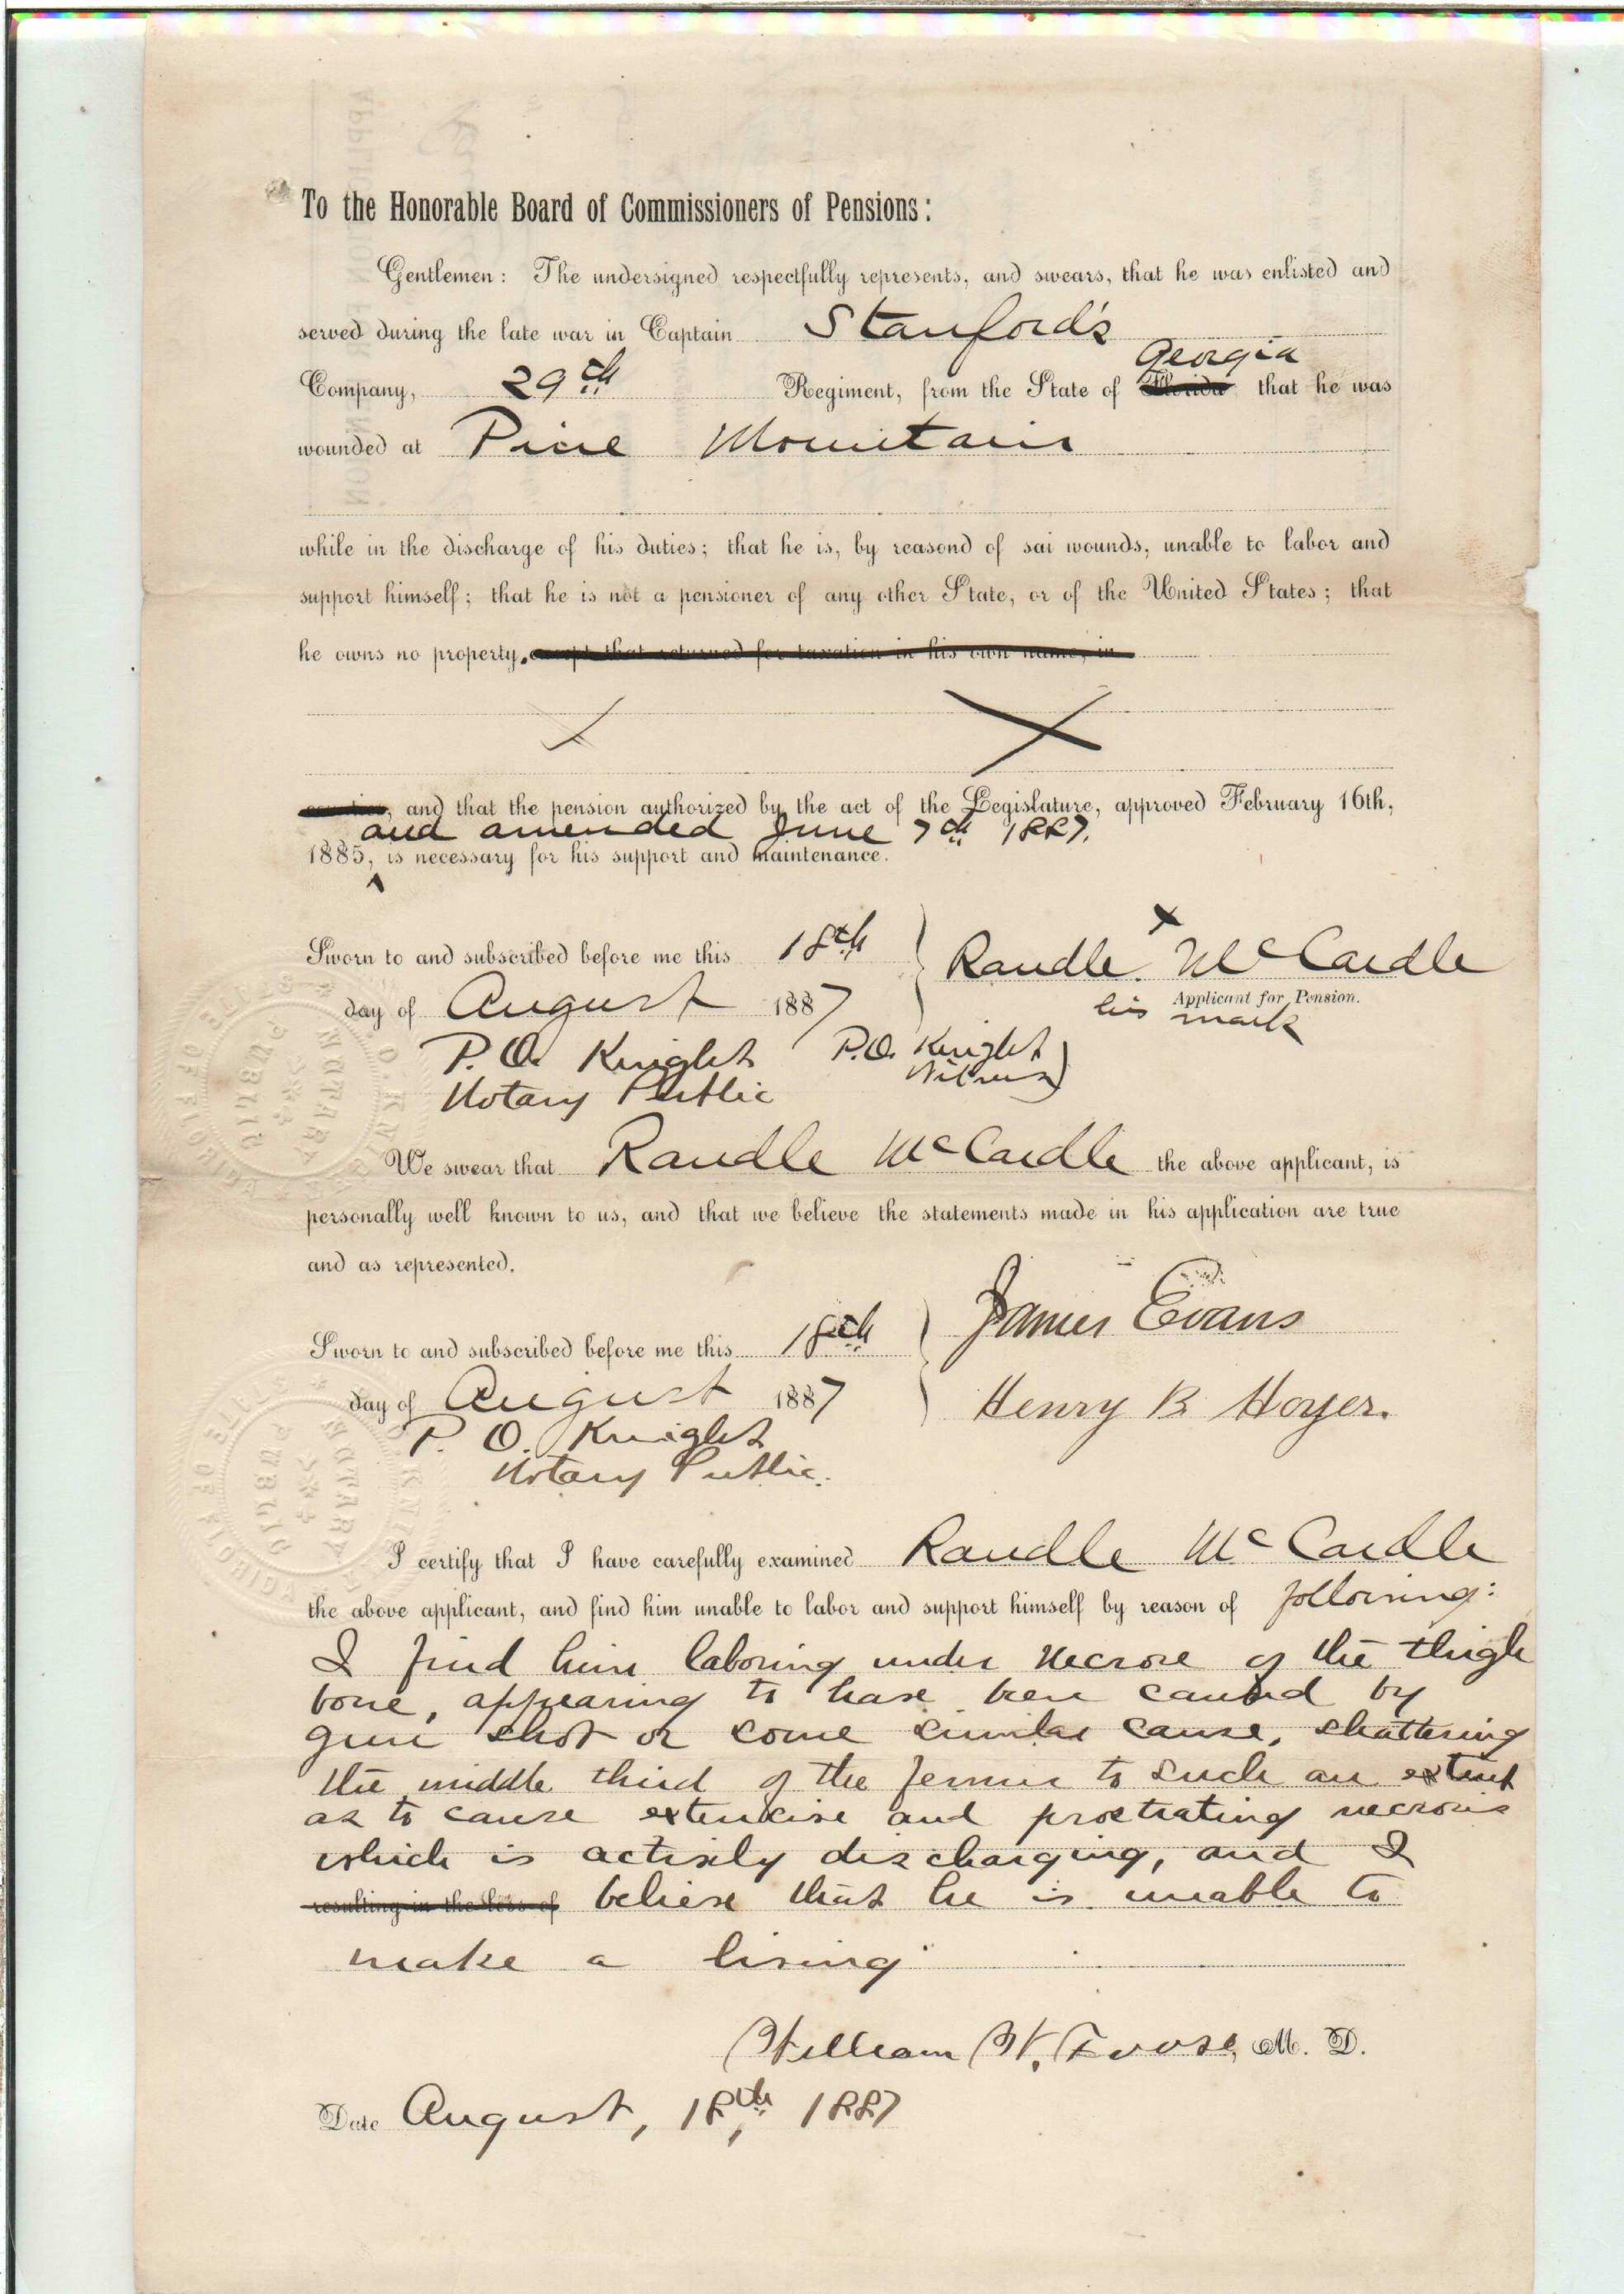 To the Honorable Board of Commissioners of Pensions:
Gentlemen: The undersigned respectfully represents, and swears, that he was enlisted and
served during the late war in Captain Stanford's
Georgia
Company, 29th Regiment, from the State of Florida that he was
wounded at Pine Mountain
while in the discharge of his duties; that he is, by reasond of sai wounds, unable to labor and
support himself; that he is not a pensioner of any other State, or of the United States; that
he owns no property, except that returned for taxation in his own name, in
X X
counties, and that the pension authorized by the act of the Legislature, approved February 16th,
and amended June 7th 1887,
1885, is necessary for his support and maintenance.
Sworn to and subscribed before me this 18th
x
Randle McCardle
Applicant for Pension.
his mark
day of August 1887
P.O. Knight
Notary Public
P.O. Knight
Witness
We swear that Randle McCardle the above applicant, is
personally well known to us, and that we believe the statements made in his application are true
and as represented.
James Evans
Sworn to and subscribed before me this 18th
day of August 1887
Henry B Hoyer.
P. O. Knight
Notary Public.
I certify that I have carefully examined Randle McCardle
the above applicant, and find him unable to labor and support himself by reason of following:
I find him laboring under necrose of the thigh
bone, appearing to have been caused by
gun shot or some similar cause, shattering
the middle third of the femur to such an extent
as to cause extensive and prostrating necrosis
which is actively discharging, and I
resulting in the loss of believe that he is unable to
make a living
William W. M. D.
Date August, 18th, 1887
STATE OF FLORIDA
NOTARY PUBLIC
P.O. KNIGHT
STATE OF FLORIDA
NOTARY PUBLIC